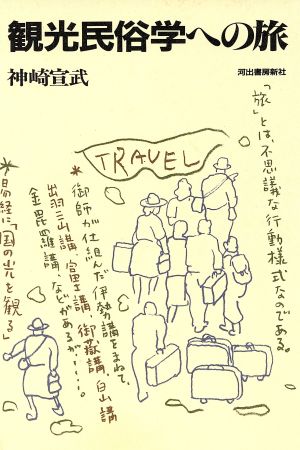 観光民俗学への旅
神崎宣武
河出書房新社
「旅」とは、不思議な行動様式なのである。
TRAVEL
*御師が仕組んだ伊勢講をまねて、
出羽三山講、富士講、御嶽講、白山講
金毘羅講、などがあるが……。
*易経に「国の光を観る」